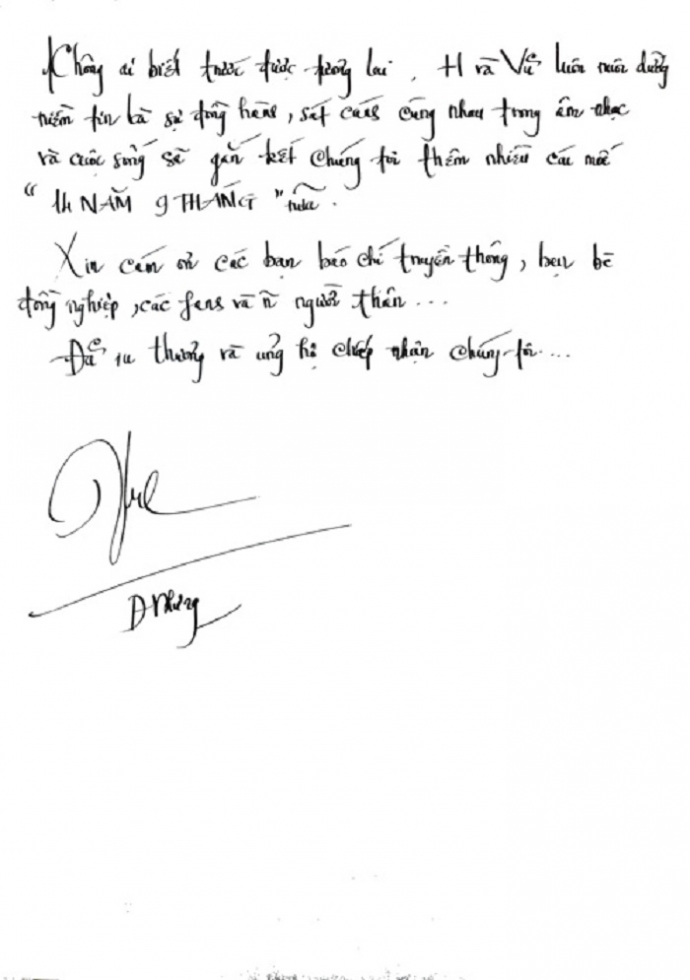 Không ai biết trước được tương lai, H và Vũ luôn nuôi dưỡng
niềm tin là sự đồng hành, sát cánh cùng nhau trong âm nhạc
và cuộc sống sẽ gắn kết chúng tôi thêm nhiều cái mốc
" 14 NĂM 9 THÁNG " nữa.
Xin cám ơn các bạn báo chí truyền thông, bạn bè
đồng nghiệp, các fans và n~ người thân...
Đã thương và ủng hộ chấp nhận chúng tôi...
D Nhưng